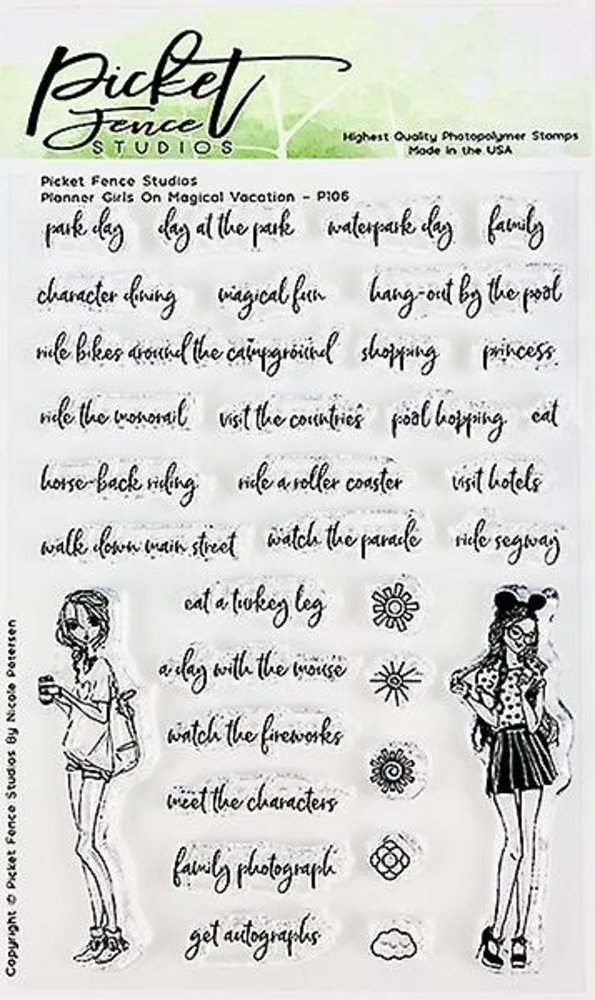 Picket
Fence
STUDIOS
Highest Quality Photopolymer Stamps
Made in the USA
Picket Fence Studios
Planner Girls On Magical Vacation - P106
park day day at the park waterpark day family
character dining magical fun hang-out by the pool
ride bikes around the campground shopping princess
ride the monorail visit the countries pool hopping eat
horse-back riding ride a roller coaster visit hotels
walk down main street watch the parade ride segway
eat a turkey leg
a day with the mouse
watch the fireworks
meet the characters
family photograph
get autographs
Copyright © Picket Fence Studios By Nicole Petersen